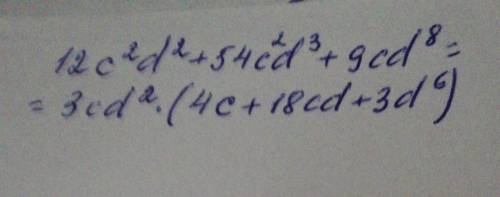 12c²d²+54c²d³+9cd⁸=
=3cd²·(4c+18cd+3d⁶)